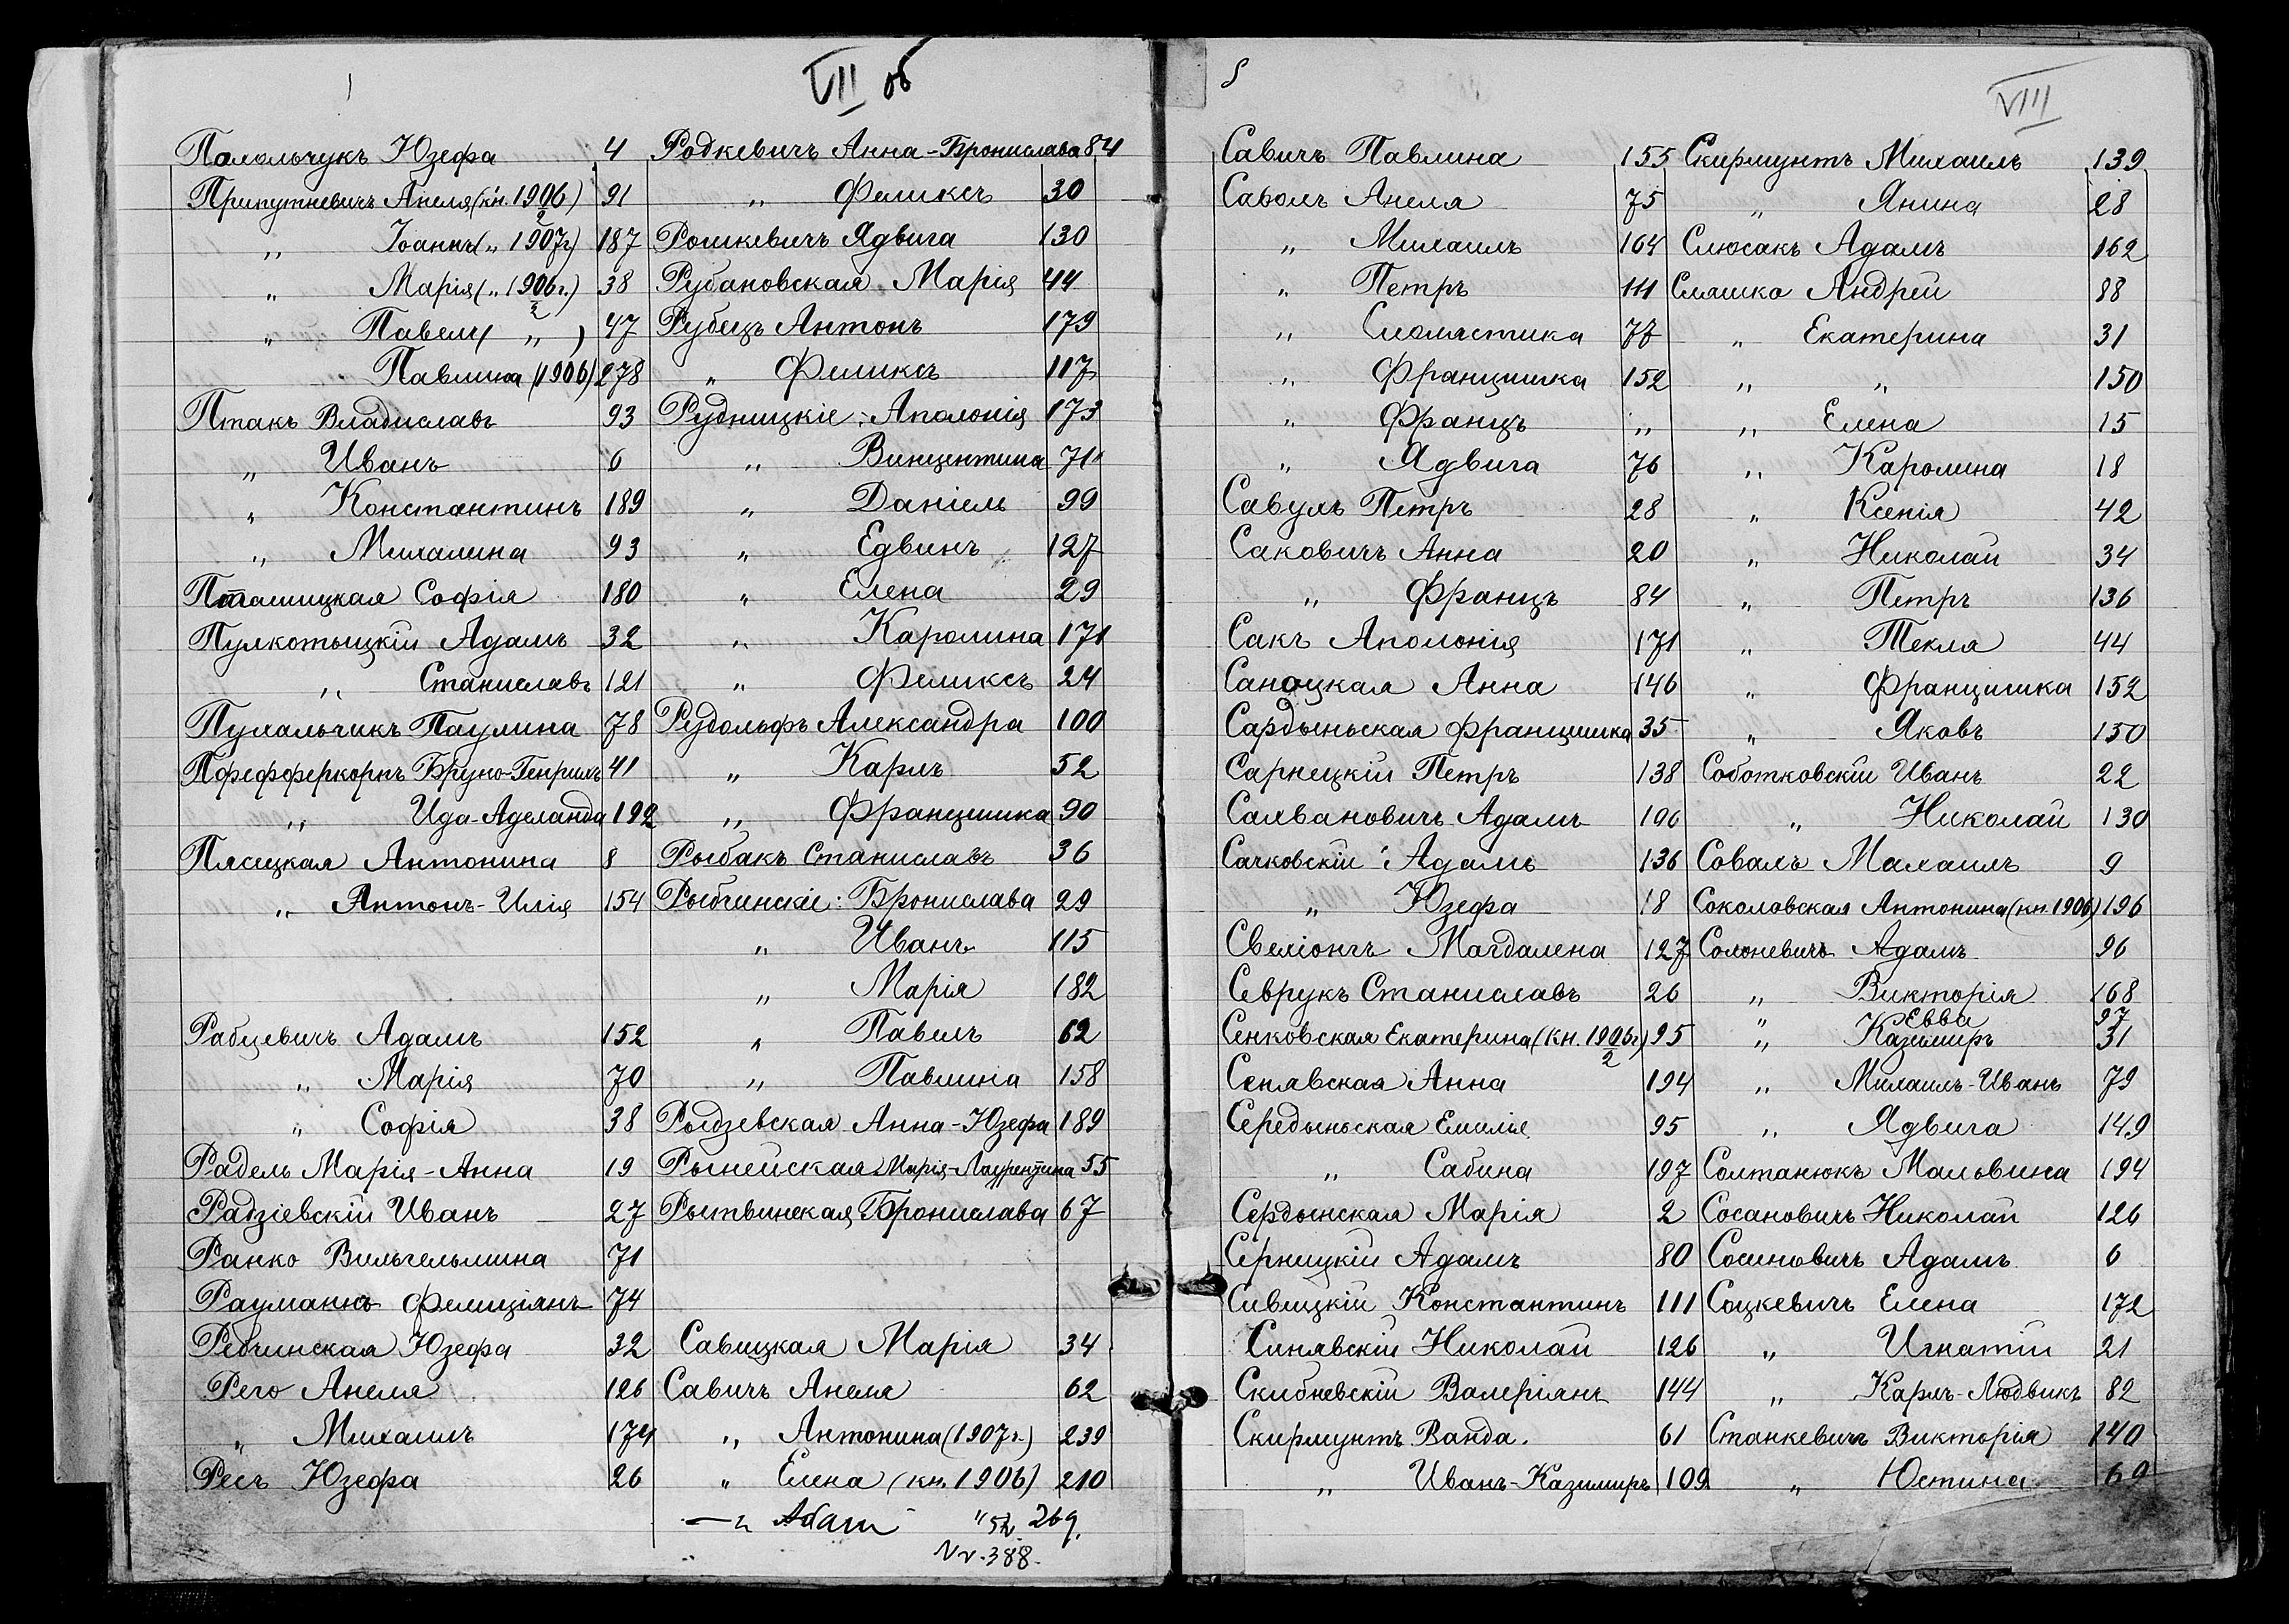 VII об
Полольчукъ Юзефа 4
Припутневичъ Анеля (кн. 1906) 91
2
„ Іоаннъ („ 1907г) 187
„ Марія („ 1906г.) 38
2
„ Павелъ ( „ ) 47
Павлина (1906) 278
Птакъ Владиславъ 93
„ Иванъ 6
„ Константинъ 189
„ Михалина 93
Пташицкая Софія 180
Пулкотыцкій Адамъ 32
„ Станиславъ 121
Пухальчикъ Паулина 78
Пфефферкорнъ Бруно-Генрихъ 41
„ Ида-Аделанда 192
Пясецкая Антонина 8
„ Антонъ-Илія 154
Рабцевичъ Адамъ 152
„ Марія 70
„ Софія 38
Радель Марія-Анна 19
Радзіевскій Иванъ 27
Ранко Вильгельмина 71
Рауманнъ Фелиціянъ 74
Ребчинская Юзефа 32
Рего Анеля 126
„ Михаилъ 174
Ресъ Юзефа 26
Родкевичъ Анна-Брониславa 84
„ Феликсъ 30
Рошкевичъ Ядвига 130
Рубановская Марія 44
Рубецъ Антонъ 179
„ Феликсъ 117
Рудницкіе: Аполонія 173
„ Винцентина 71
„ Даніель 99
„ Едвинъ 127
„ Елена 29
„ Каролина 171
„ Феликсъ 24
Рудольфъ Александра 100
„ Карлъ 52
„ Францишка 90
Рыбакъ Станиславъ 36
Рыбчинскіе: Бронислава 29
„ Иванъ 115
„ Марія 182
„ Павелъ 62
„ Павлина 158
Рыдзевская Анна-Юзефа 189
Рынейская Марія-Лаурентина 55
Рытвинская Бронислава 67
Савицкая Марія 34
Савичъ Анеля 62
„ Антонина (1907г.) 239
„ Елена (кн. 1906) 210
—„ Adam " 52. 269.
Nr. 388.
8
VIII
Савичъ Павлина 155
Саволъ Анеля 75
„ Михаилъ 164
„ Петръ 111
„ Схоластика 77
„ Францишка 152
„ Францъ „
„ Ядвига 76
Савулъ Петръ 28
Саковичъ Анна 20
„ Францъ 84
Сакъ Аполонія 171
Саноцкая Анна 146
Сардыньская Францишка 35
Сарнецкій Петръ 138
Сахвановичъ Адамъ 106
Сачковскій Адамъ 136
„ Юзефа 18
Свеліонгъ Магдалена 127
Севрукъ Станиславъ 26
Сенковская Екатерина (кн. 1906г) 95
2
Сенявская Анна 194
Середыньская Емилія 95
„ Сабина 197
Сердынская Марія 2
Серницкій Адамъ 80
Сивицкій Константинъ 111
Синявскій Николай 126
Скибневскій Валеріянъ 144
Скирмунтъ Ванда. 61
„ Иванъ-Казимиръ 109
Скирмунтъ Михаилъ 139
„ Янина 28
Слюсакъ Адамъ 162
Сляшко Андрей 88
„ Екатерина 31
„ „ 150
„ Елена 15
„ Каролина 18
„ Ксенія 42
„ Николай 34
„ Петръ 136
„ Текля 44
„ Францишка 152
„ Яковъ 150
Соботковскій Иванъ 22
„ Николай 130
Совалъ Махаилъ 9
Соколовская Антонина (кн. 1906) 196
Солоневичъ Адамъ 96
„ Викторія 168
„ Евва 97
„ Казимиръ 31
„ Михаилъ-Иванъ 79
„ Ядвига 149
Солтанюкъ Мальвина 194
Сосановичъ Николай 126
Сосиновичъ Адамъ 6
Соцкевичъ Елена 172
„ Игнатій 21
„ Карлъ-Людвикъ 82
Станкевичъ Викторія 140
„ Юстина 69